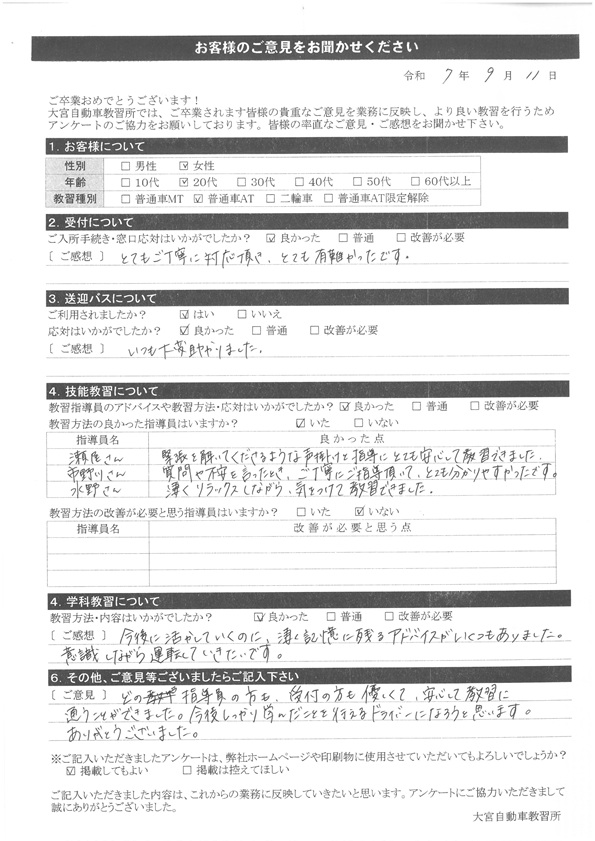 お客様のご意見をお聞かせください
令和 7年 9月 11日
ご卒業おめでとうございます！
大宮自動車教習所では、ご卒業されます皆様の貴重なご意見を業務に反映し、より良い教習を行うため
アンケートのご協力をお願いしております。皆様の率直なご意見・ご感想をお聞かせ下さい。
1. お客様について
性別 □ 男性 ☑ 女性
年齢 □ 10代 ☑ 20代 □ 30代 □ 40代 □ 50代 □ 60代以上
教習種別 □ 普通車MT ☑ 普通車AT □ 二輪車 □ 普通車AT限定解除
2. 受付について
ご入所手続き・窓口応対はいかがでしたか？ ☑ 良かった □ 普通 □ 改善が必要
［ ご感想 ］ とてもご丁寧に対応頂き、とても有難かったです。
3. 送迎バスについて
ご利用されましたか？ ☑ はい □ いいえ
応対はいかがでしたか？ ☑ 良かった □ 普通 □ 改善が必要
［ ご感想 ］ いつも大変助かりました。
4. 技能教習について
教習指導員のアドバイスや教習方法・応対はいかがでしたか？ ☑ 良かった □ 普通 □ 改善が必要
教習方法の良かった指導員はいますか？ ☑ いた □ いない
指導員名 良かった点
瀬尾さん 緊張を解いてくださるような声掛けと指導にとても安心して教習できました。
市野川さん 質問や不安を言ったとき、ご丁寧にご指導頂いて、とても分かりやすかったです。
水野さん 凄くリラックスしながら、気をつけて教習できました。
教習方法の改善が必要と思う指導員はいますか？ □ いた ☑ いない
指導員名 改善が必要と思う点
4. 学科教習について
教習方法・内容はいかがでしたか？ ☑ 良かった □ 普通 □ 改善が必要
［ ご感想 ］ 今後に活かしていくのに、凄く記憶に残るアドバイスがいくつもありました。
意識しながら運転していきたいです。
6. その他、ご意見等ございましたらご記入下さい
［ ご意見 ］ どの指導員の方も、受付の方も優しくて、安心して教習に
通うことができました。今後しっかり学んだことを行えるドライバーになろうと思います。
ありがとうございました。
※ご記入いただきましたアンケートは、弊社ホームページや印刷物に使用させていただいてもよろしいでしょうか？
☑ 掲載してもよい □ 掲載は控えてほしい
ご記入いただきました内容は、これからの業務に反映していきたいと思います。アンケートにご協力いただきまして
誠にありがとうございました。
大宮自動車教習所